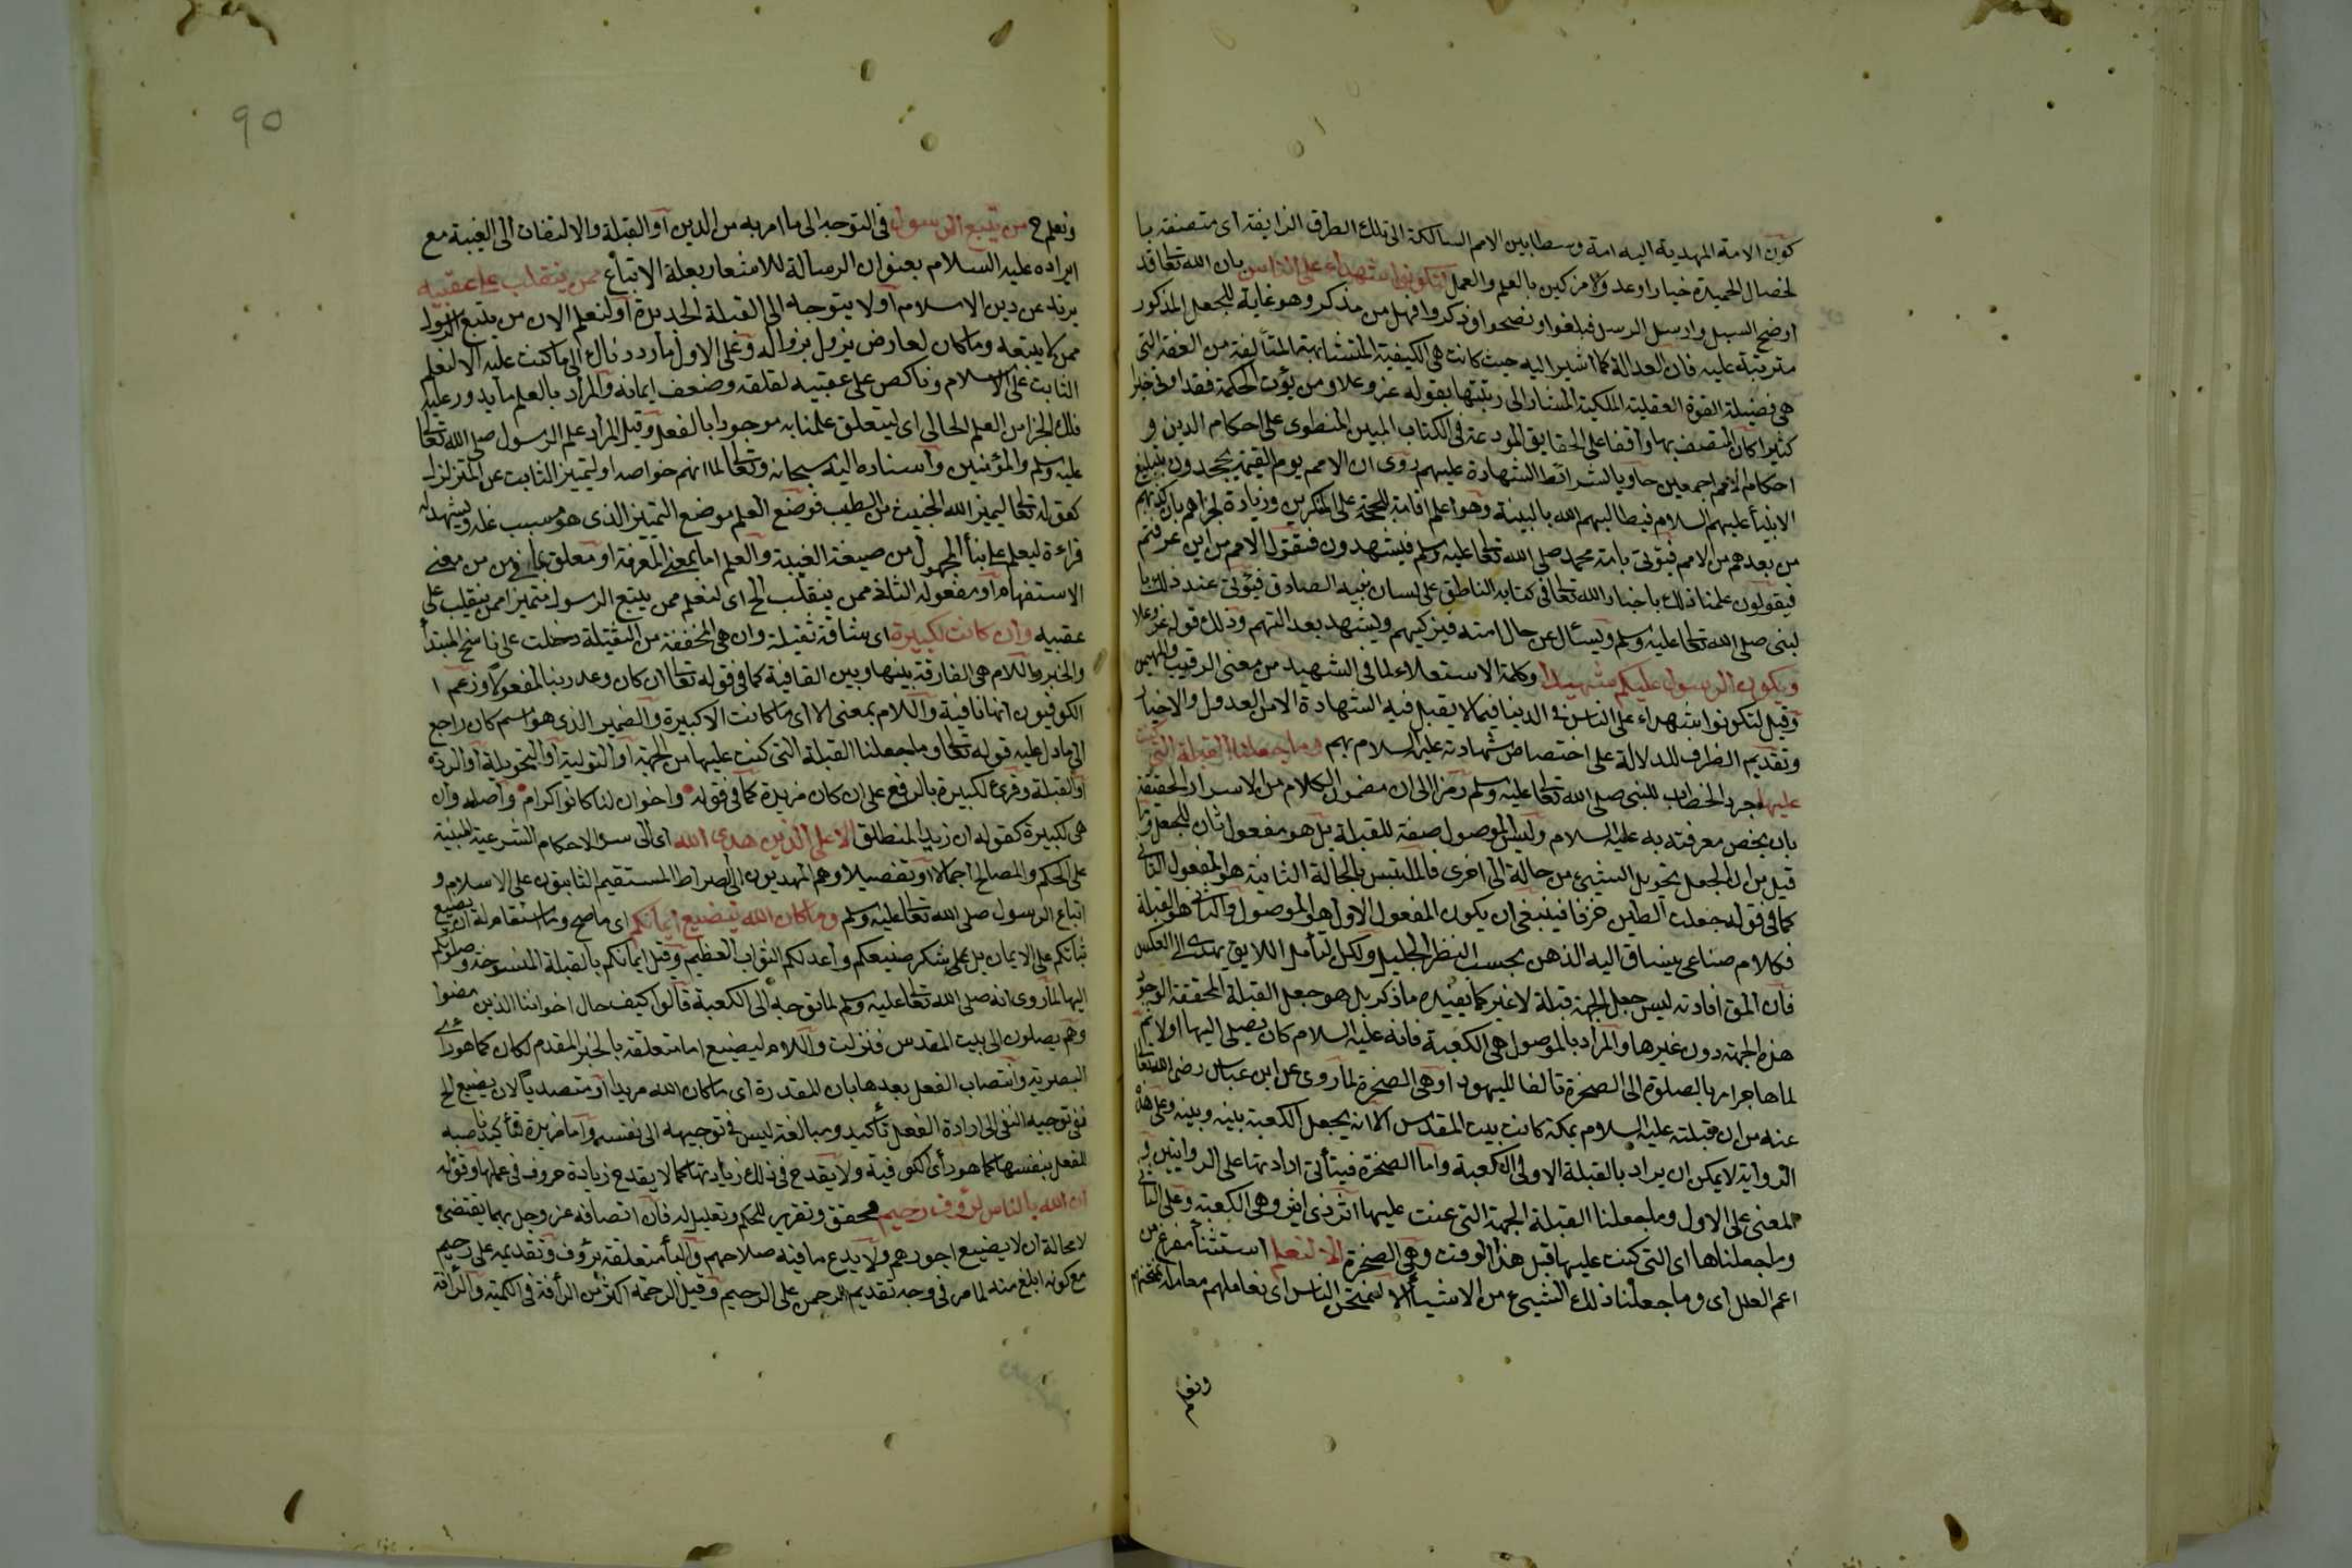 كون الامة المهدية اليه امة وسطا بين الامم السالكة الى تلك الطرق الزايغة اى متصفة با
لخصال الحميدة خيارا وعدولا مزكين بالعلم والعمل لتكونوا شهداء على الناس بان الله تعا قد
اوضح السبل وارسل الرسل فبلغوا ونصحوا وذكروا فهل من مذكر وهو غاية للجعل المذكور
مترتبة عليه فان العدالة كما اشير اليه حيث كانت هى الكيفية المتشابهة المتألفة من العفة التى
هى فضيلة القوة العقلية الملكية المشار الى رتبتها بقوله عز وعلا ومن يؤت الحكمة فقد اوتى خيرا
كثيرا كان المتصف بها واقفا على الحقايق المودعة فى الكتاب المبين المنطوى على احكام الدين و
احكام الامم اجمعين حاويا لشرائط الشهادة عليهم روى ان الامم يوم القيمة يجحدون بتبليغ
الانبيأ عليهم السلام فيطالبهم الله بالبينة وهو اعلم اقامة للحجة على المنكرين وزيادة لخزيهم بان كذبهم
من بعدهم من الامم فيؤتى بامة محمد صلى الله تعا عليه وسلم فيشهدون فيقول الامم من اين عرفتم
فيقولون علمنا ذلك باخبار الله تعا فى كتابه الناطق على لسان نبيه الصادق فيؤتى عند ذلك با
لنبى صلى الله تعا عليه وسلم ويسأل عن حال امته فيزكيهم ويشهد بعدالتهم وذلك قوله عز وعلا
ويكون الرسول عليكم شهيدا وكلمة الاستعلاء لما فى الشهيد من معنى الرقيب والمهيمن
وقيل لتكونوا شهداء على الناس فى الدنيا فيما لا يقبل فيه الشهادة الا من العدول والاخيار
وتقديم الظرف للدلالة على اختصاص شهادته عليه السلام بهم وما جعلنا القبلة التى كنت
عليها جرد الخطاب للنبى صلى الله تعا عليه وسلم رمزا الى ان مضمون الكلام من الاسرار الحقيقة
بان يخص معرفته به عليه السلام وليس الموصول صفة للقبلة بل هو مفعول ثان للجعل وما
قيل من ان الجعل تحويل الشيئ من حالة الى اخرى فالملتبس بالحالة الثانية هو المفعول الثانى
كما فى قوله جعلت الطين خزفا فينبغى ان يكون المفعول الاول هو الموصول والثانى هو القبلة
فكلام صناعى ينساق اليه الذهن بحسب النظر الجليل ولكن التأمل اللايق يهدى الى العكس
فان المق افادته ليس جعل الجهة قبلة لا غير كما يفيده ما ذكر بل هو جعل القبلة المحققة الوجود
هذه الجهة دون غيرها والمراد بالموصول هى الكعبة فانه عليه السلام كان يصلى اليها اولا ثم
لما هاجر امر بالصلوة الى الصخرة تالفا لليهود او هى الصخرة لما روى عن ابن عباس رضى الله تعا
عنه من ان قبلته عليه السلام بمكة كانت بيت المقدس الا انه يجعل الكعبة بينه وبينه وعلى هذه
الرواية لا يمكن ان يراد بالقبلة الاولى الكعبة واما الصخرة فيتأتى ارادتها على الروايتين و
المعنى على الاول وما جعلنا القبلة الجهة التى عنت عليها اثر ذى اثير وهى الكعبة وعلى الثانى
وما جعلناها اى التى كنت عليها قبل هذا الوقت وهى الصخرة الا لنعلم استثنأ مفرغ من
اعم العلل اى وما جعلنا ذلك الشيئ من الاشيأ الا لنمتحن الناس اى نعاملهم معاملة يمتحنهم
ونعلم
ونعلم ح من يتبع الرسول فى التوجه الى ما امر به من الدين او القبلة والالتفات الى الغيبة مع
ايراده عليه السلام بعنوان الرسالة للاشعار بعلة الاتباع ممن ينقلب على عقبيه
يرتد عن دين الاسلام او لا يتوجه الى القبلة الجديدة او لنعلم الان من يتبع الرسول
ممن لا يتبعه وما كان لعارض يزول بزواله وعلى الاول ما رددناك الى ما كنت عليه الا لنعلم
الثابت على الاسلام وناكص على عقبيه لقلقه وضعف ايمانه والمراد بالعلم ما يدور عليه
فلك الجزا من العلم الحالى اى ليتعلق علمنا به موجودا بالفعل وقيل المراد علم الرسول صلى الله تعا
عليه وسلم والمؤمنين واسناده اليه سبحانه وتعالى لما انهم خواصه او ليتميز الثابت عن المتزلزل
كقوله تعا ليميز الله الخبيث من الطيب فوضع العلم موضع التميز الذى هو مسبب عنه ويشهد له
قراءة ليعلم على بنأ المجهول من صيغة الغيبة والعلم اما بمعنى المعرفة او معلق بما فى من من معنى
الاستفهام او مفعوله الثانى ممن ينقلب الخ اى لنعلم من يتبع الرسول متميزا ممن ينقلب على
عقبيه وان كانت لكبيرة اى شاقة ثقيلة وان هى المخففة من الثقيلة دخلت على ناسخ المبتدأ
والخبر واللام هى الفارقة بينها وبين النافية كما فى قوله تعا ان كان وعد ربنا لمفعولا وزعم ا
لكوفيون انها نافية واللام بمعنى الا اى ما كانت الا كبيرة والضمير الذى هو اسم كان راجع
الى ما دل عليه قوله تعا وما جعلنا القبلة التى كنت عليها من الجهة او التولية او التحويلة او الردة
او القبلة وقرئ لكبيرة بالرفع على ان كان مزيدة كما فى قوله واخوان لنا كانوا كرام واصله وان
هى لكبيرة كقوله ان زيد لمنطلق الا على الذين هدى الله اى الى سر الاحكام الشرعية المبنية
على الحكم والمصالح اجمالا او تفصيلا وهم المهديون الى الصراط المستقيم الثابتون على الاسلام و
اتباع الرسول صلى الله تعا عليه وسلم وما كان الله ليضيع ايمانكم اى ما صح وما استقام له ان يضيع
ثباتكم على الايمان بل على شكر صنيعكم واعد لكم الثواب العظيم وقيل ايمانكم بالقبلة المنسوخة وصلوتكم
اليها لما روى انه صلى الله تعا عليه وسلم لما توجه الى الكعبة قالوا كيف حال اخواننا الذين مضوا
وهم يصلون الى بيت المقدس فنزلت واللام ليضيع اما متعلقة بالخبر المقدم لكان كما هو راى
البصرية وانتصاب الفعل بعدها بان المقدرة اى ما كان الله مريدا او متصديا لان يضيع الخ
ففى توجيه النفى الى ارادة الفعل تأكيد ومبالغة ليس فى توجيهه الى نفسه واما مزيدة للتأكيد ناصبة
للفعل بنفسها كما هو رأى الكوفية ولا يقدح فى ذلك زيادتها كما لا يقدح زيادة حروف فى عملها وقوله
ان الله بالناس لرؤف رحيم محقق وتقرير للحكم وتعليل له فان اتصافه عز وجل بهما يقتضى
لا محالة ان لا يضيع اجورهم ولا يدع ما فيه صلاحهم والبأ متعلقة برؤف وتقديمه على رحيم
مع كونه ابلغ منه لما مر فى وجه تقديم الرحمن على الرحيم وقيل الرحمة اكثر من الرأفة فى الكمية والرأفة